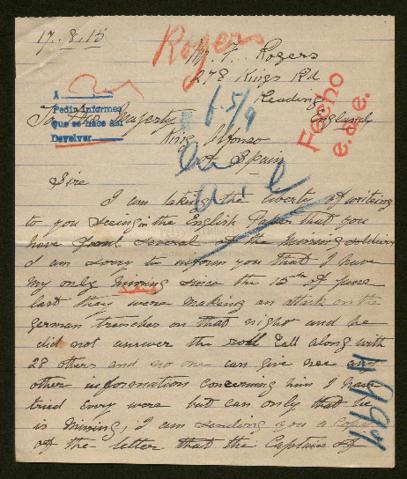 17.8.15
Rogers
Mr. F. Rogers
278 Kings Rd
Reading
England
A
Pedir informes
que se hace así
Devolver
To His Majesty
King Alfonso
of Spain
6.5/9
Fecho
e.d.e.
Sire
I am taking the liberty of writing
to you seeing in the English Paper that you
have found several of the missing soldiers
I am sorry to inform you that I have
my only missing since the 15th of June
last they were making an attack on the
German trenches on that night and he
did not answer the roll call along with
28 others and no one can give me any
other information concerning him I have
tried every were but can only that he
is missing, I am sending you a copy
of the letter that the Captain of